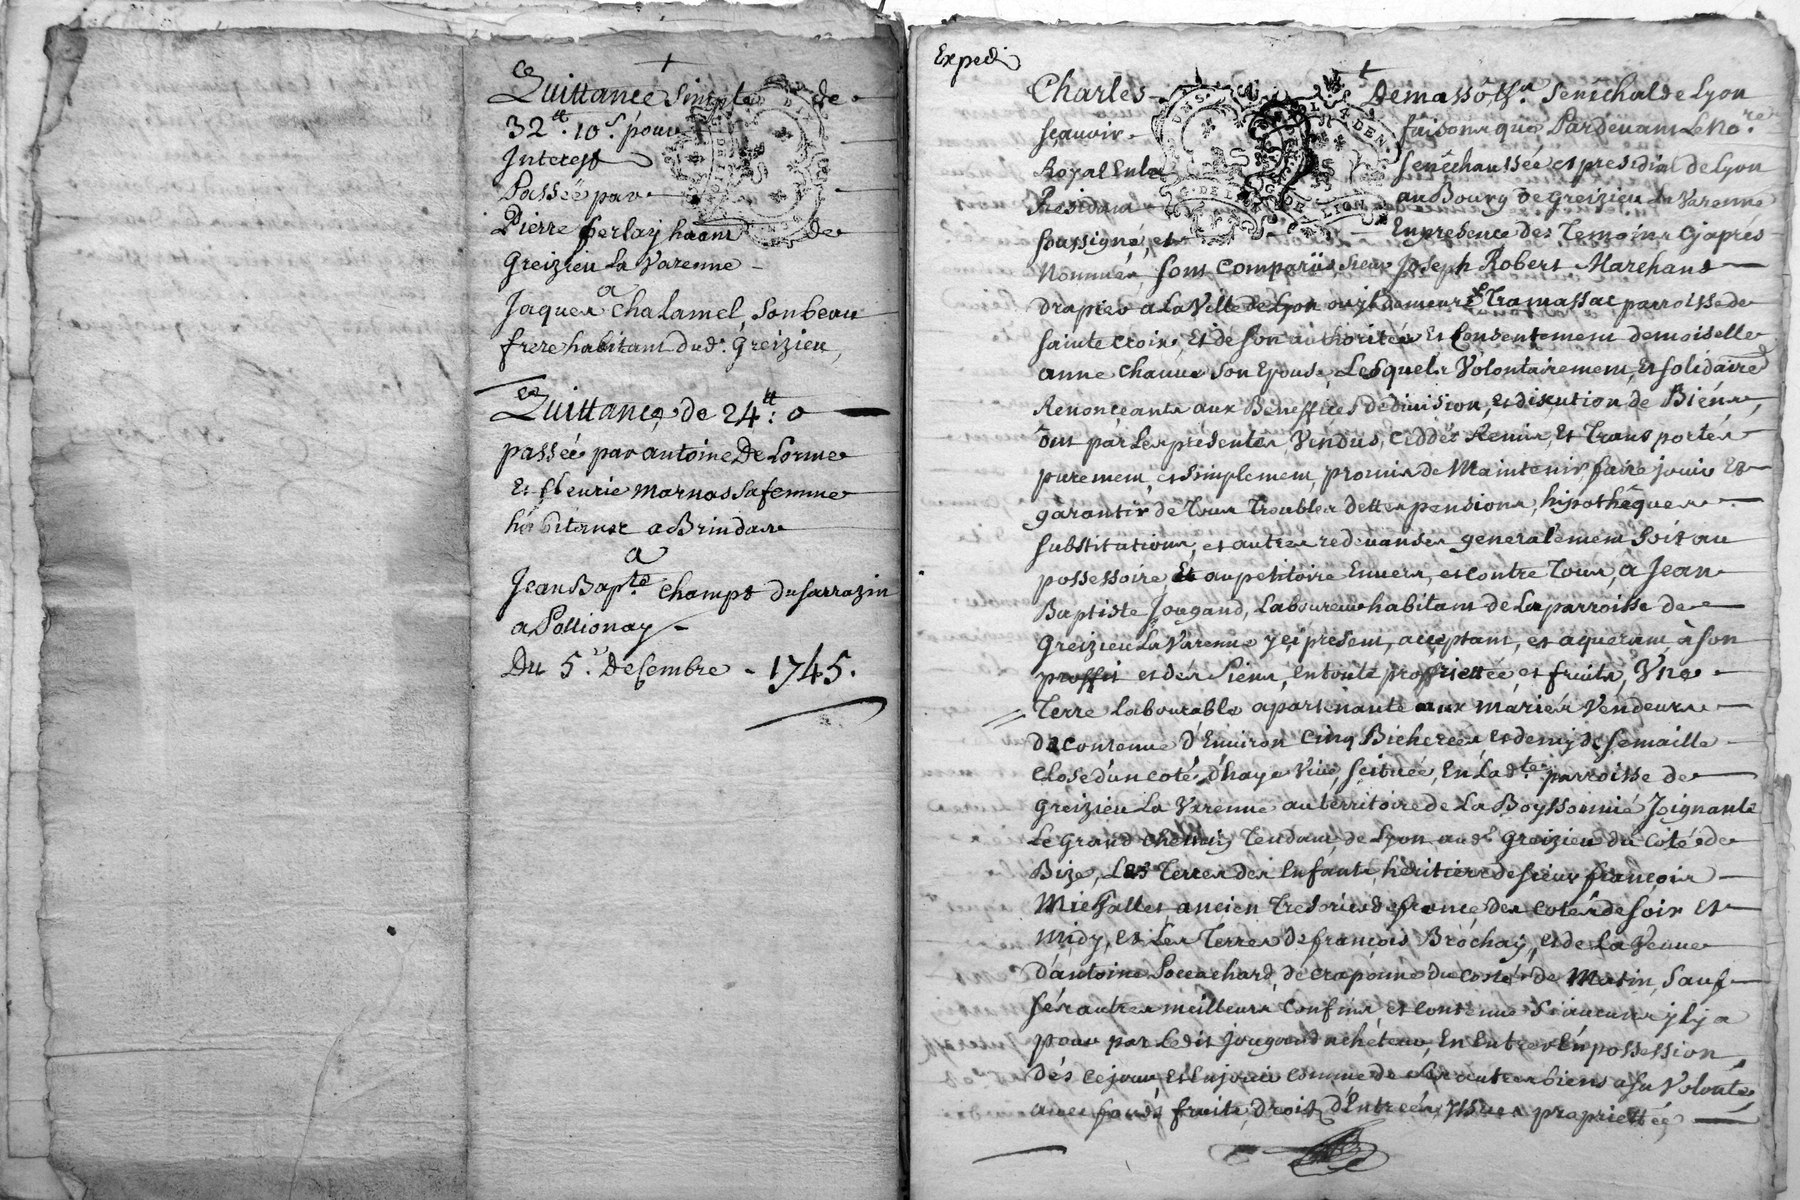 Quittance simple de
32tt. 10s. pour
Interest
Passée par
Pierre ferlay habitant de
Greizieu La Varenne
a
Jaques Chalamel, Son beau
frere habitant dud. Greizieu,
Quittance, de 24tt: 0
passée par antoine De Lorme
Et fleurie marnas sa femme
habitants a Brindas
a
Jean Bapte. Champt du sarrazin
a Pollionay
Du 5e. Decembre - 1745.
Expedié
Charles Demasso Sénéchal de Lyon
scavoir faisons que Pardevant Le No.re
Royal En la senéchaussée et presidial de Lyon
Residant au Bourg de Greizieu La Varenne
soussigné, et En presence des Temoins cy aprés
Nommés, sont comparüs, sieur Joseph Robert Marchand
drapier a La Ville de Lyon ou il demeure Tramassac parroisse de
sainte croix, Et de son authorité Et Consentement demoiselle
anne Chauve son Epouse, Lesquels Volontairement, Et solidaires
Renonceants aux Bénéffices de division, et discution de Biens,
ont par Les présentes Vendus, ceddés Remis, Et Transportés
purement, et simplement, promis de Maintenir, faire jouir Et
garantir de Tous Troubles dettes pensions, hipothéques
substitutions, et autres redevances generalement soit au
possessoire Et au petitoire Envers, et contre Tous, à Jean
Baptiste Jougand, Laboureur habitant de La parroisse de
Greizieu La Varenne y ci present, acceptant, et aquerant, à son
proffit et des siens, en toute proprietée, et fruits, Une
Terre Labourable apartenante aux mariés Vendeurs
de contenue d'Environ cinq Bicherées et demy de semaille
close d'un coté d'haye Vive, scituée, En Lad.te parroisse de
Greizieu La Varenne au territoire de La Boyssonnié Joignante
Le grand chemin Tendant de Lyon aud. Greizieu du coté de
Bize, Les Terres des Enfants, héritiers de sieur françois
Michallet ancien Tresorier de france des cotés de soir Et
midy, Et Les Terres de françois Bröchay, et de La Veuve
d'antoine Poccachard de craponne du coté de Matin, sauf
sés autres meilleurs confins et contenue si aucuns y Ly a
pour par Ledit Jougand achéteur, En Entrer En possession
dés ce jour et En jouir comme de ses autres biens a sa Volonté
avec fonds fruits, droits d'Entrées, yssues, proprietté,